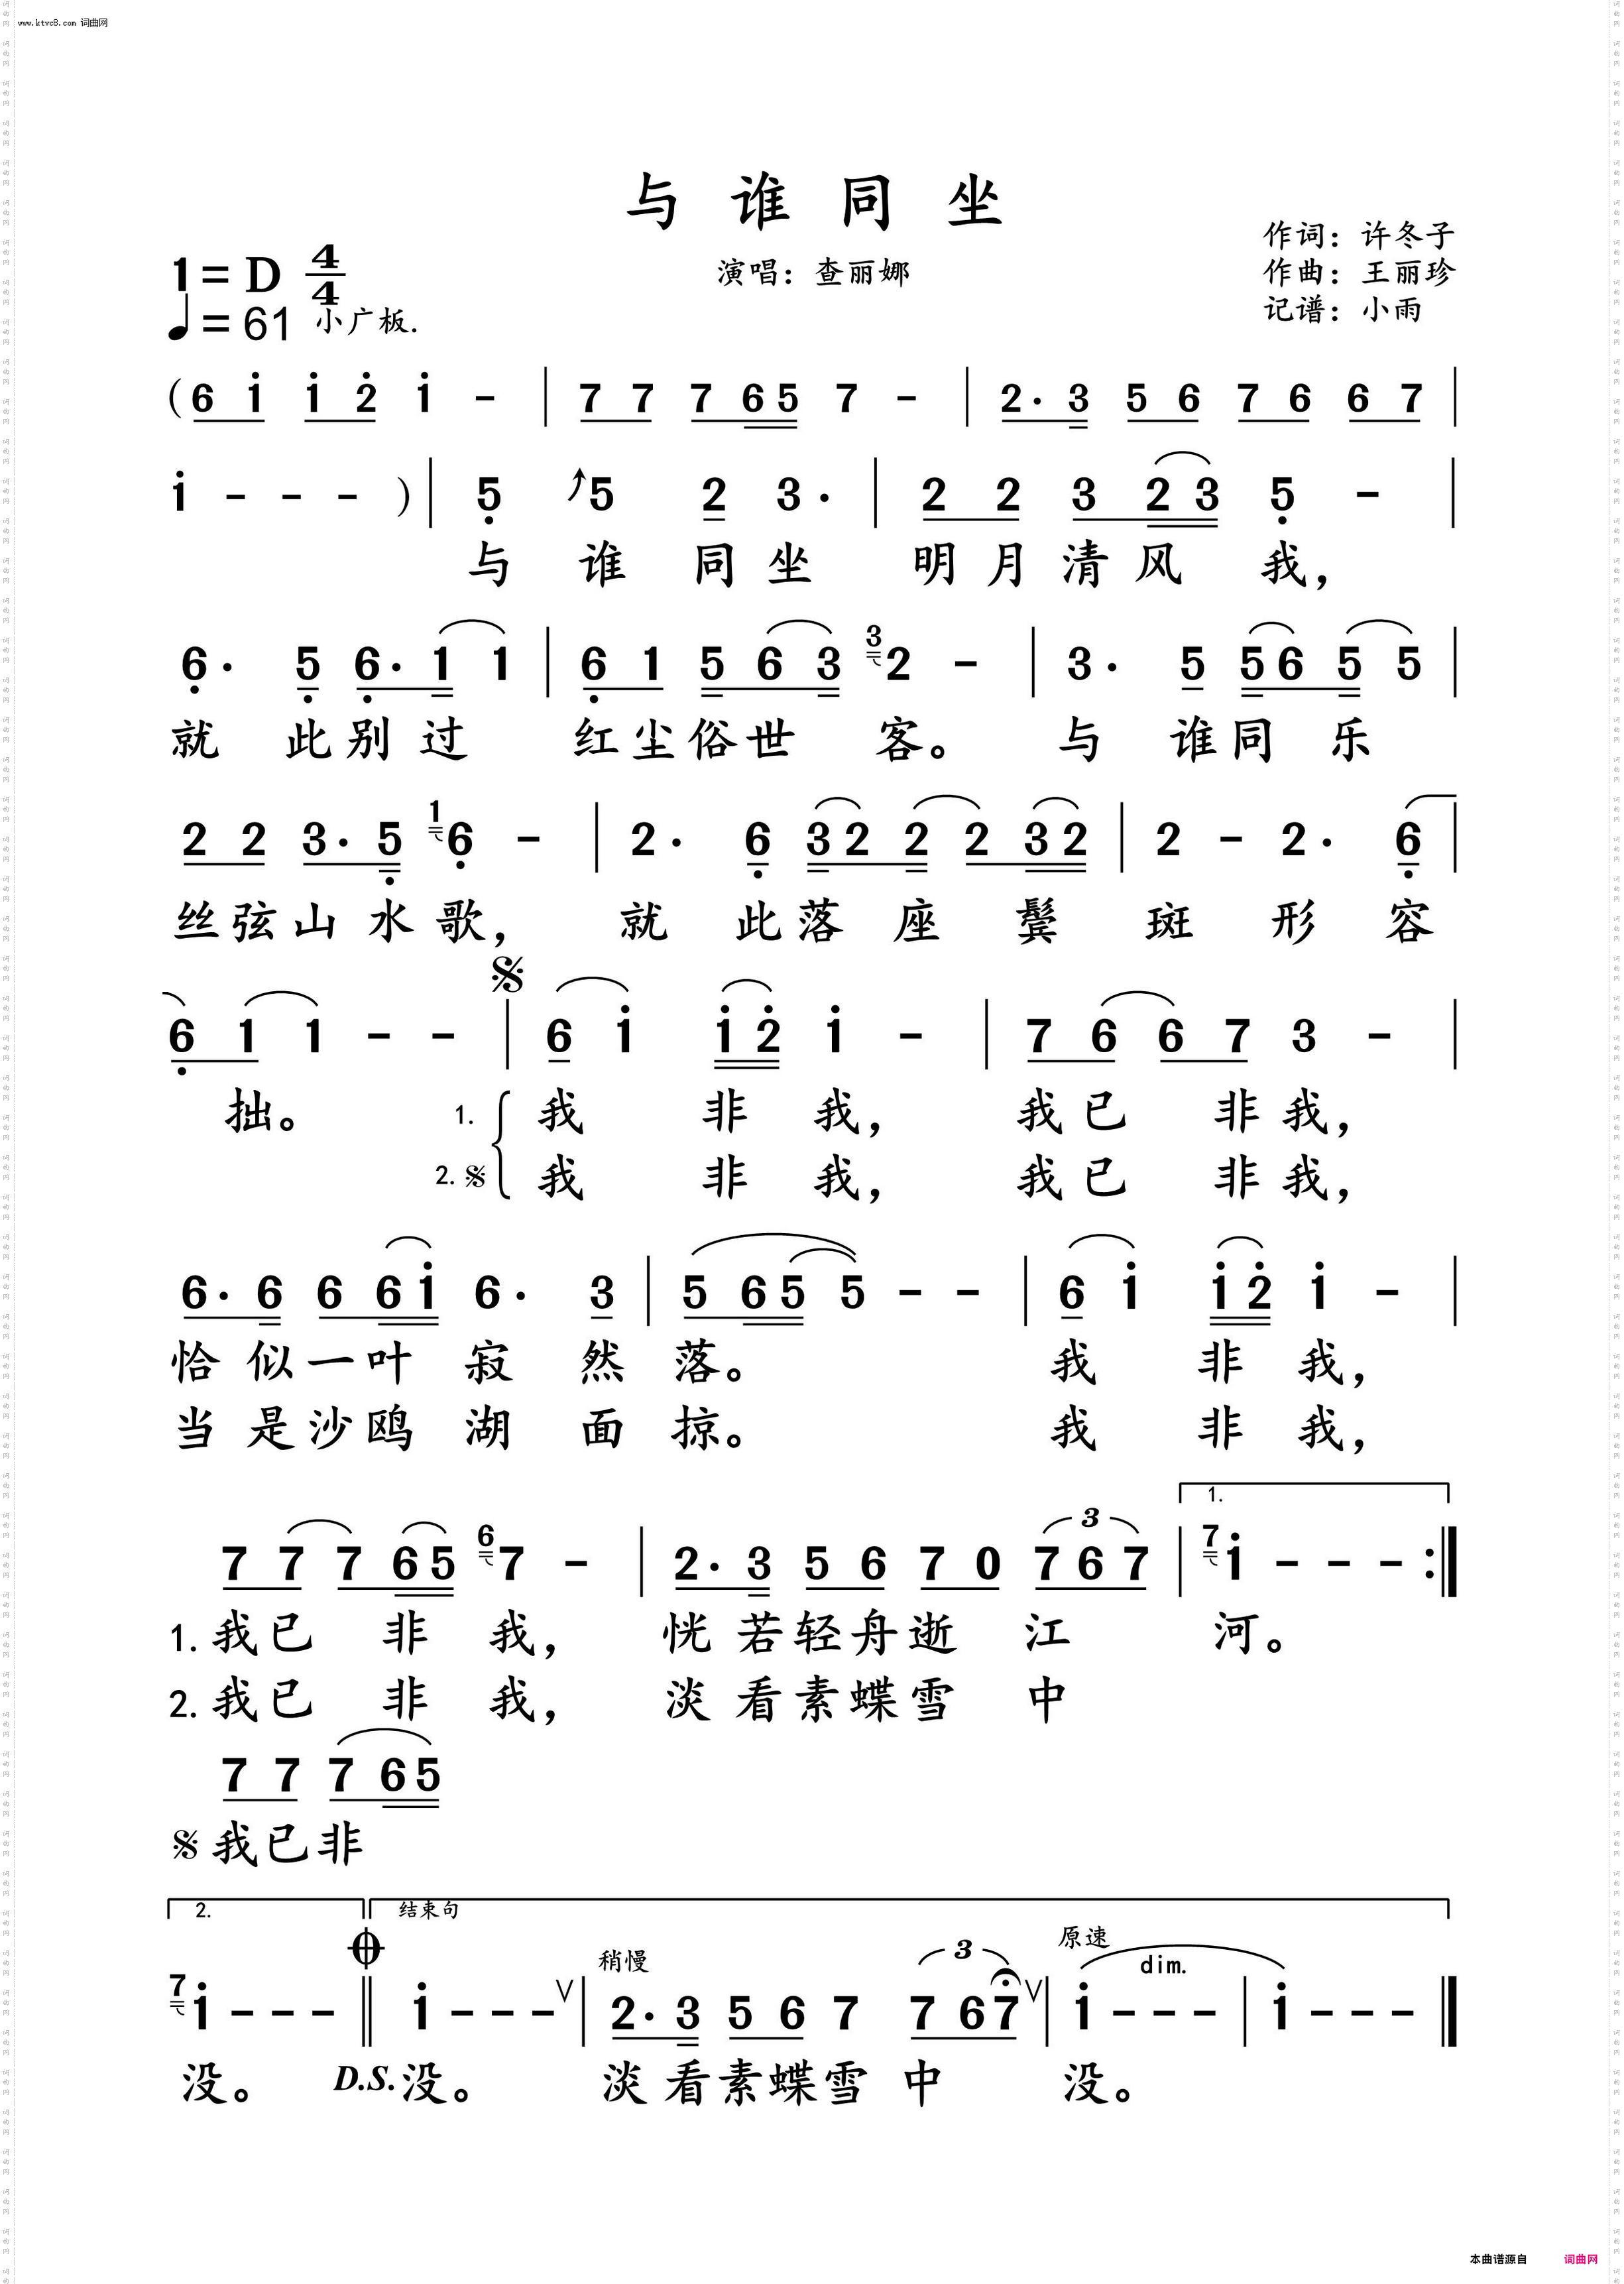 www.ktvc8.com 词曲网
与谁同坐
作词：许冬子
1=D 4/4 演唱：查丽娜 作曲：王丽珍
♩=61 小广板. 记谱：小雨
(6 i i 2 i - | 7 7 7 6 5 7 - | 2· 3 5 6 7 6 6 7 |
i - - - ) | 5 5 2 3· | 2 2 3 2 3 5 - |
与 谁 同 坐 明 月 清 风 我，
6· 5 6· 1 1 | 6 1 5 6 3 3 2 - | 3· 5 5 6 5 5 |
就 此 别 过 红 尘 俗 世 客。 与 谁 同 乐
2 2 3· 5 1 6 - | 2· 6 3 2 2 2 3 2 | 2 - 2· 6 |
丝 弦 山 水 歌， 就 此 落 座 鬓 斑 形 容
6 1 1 - - | 6 i i 2 i - | 7 6 6 7 3 - |
拙。 1. 我 非 我， 我 已 非 我，
2. 我 非 我， 我 已 非 我，
6· 6 6 6 i 6· 3 | 5 6 5 5 - - | 6 i i 2 i - |
恰 似 一 叶 寂 然 落。 我 非 我，
当 是 沙 鸥 湖 面 掠。 我 非 我，
1.
7 7 7 6 5 6 7 - | 2· 3 5 6 7 0 3 7 6 7 | 7 i - - - :|
1. 我 已 非 我， 恍 若 轻 舟 逝 江 河。
2. 我 已 非 我， 淡 看 素 蝶 雪 中
7 7 7 6 5
我 已 非
2. 结束句
稍慢 原速 dim.
7 i - - - || i - - - | 2· 3 5 6 7 3 7 6 7 | i - - - | i - - - ||
没。 D.S. 没。 淡 看 素 蝶 雪 中 没。
本曲谱源自 词曲网